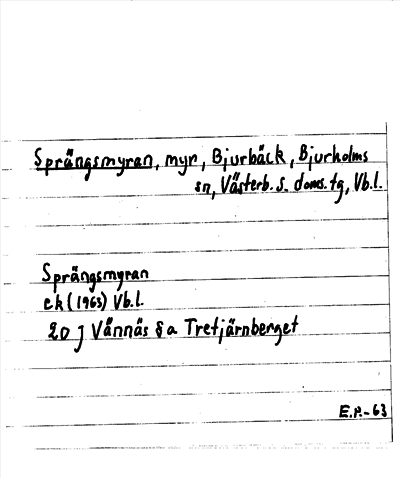 Sprängsmyran, myr, Bjurbäck, Bjurholms
sn, Västerb. s. doms. tg, Vb.l.
Sprängsmyran
ek (1963) Vb.l.
20 J Vännäs § a Tretjärnberget
E.P.-63